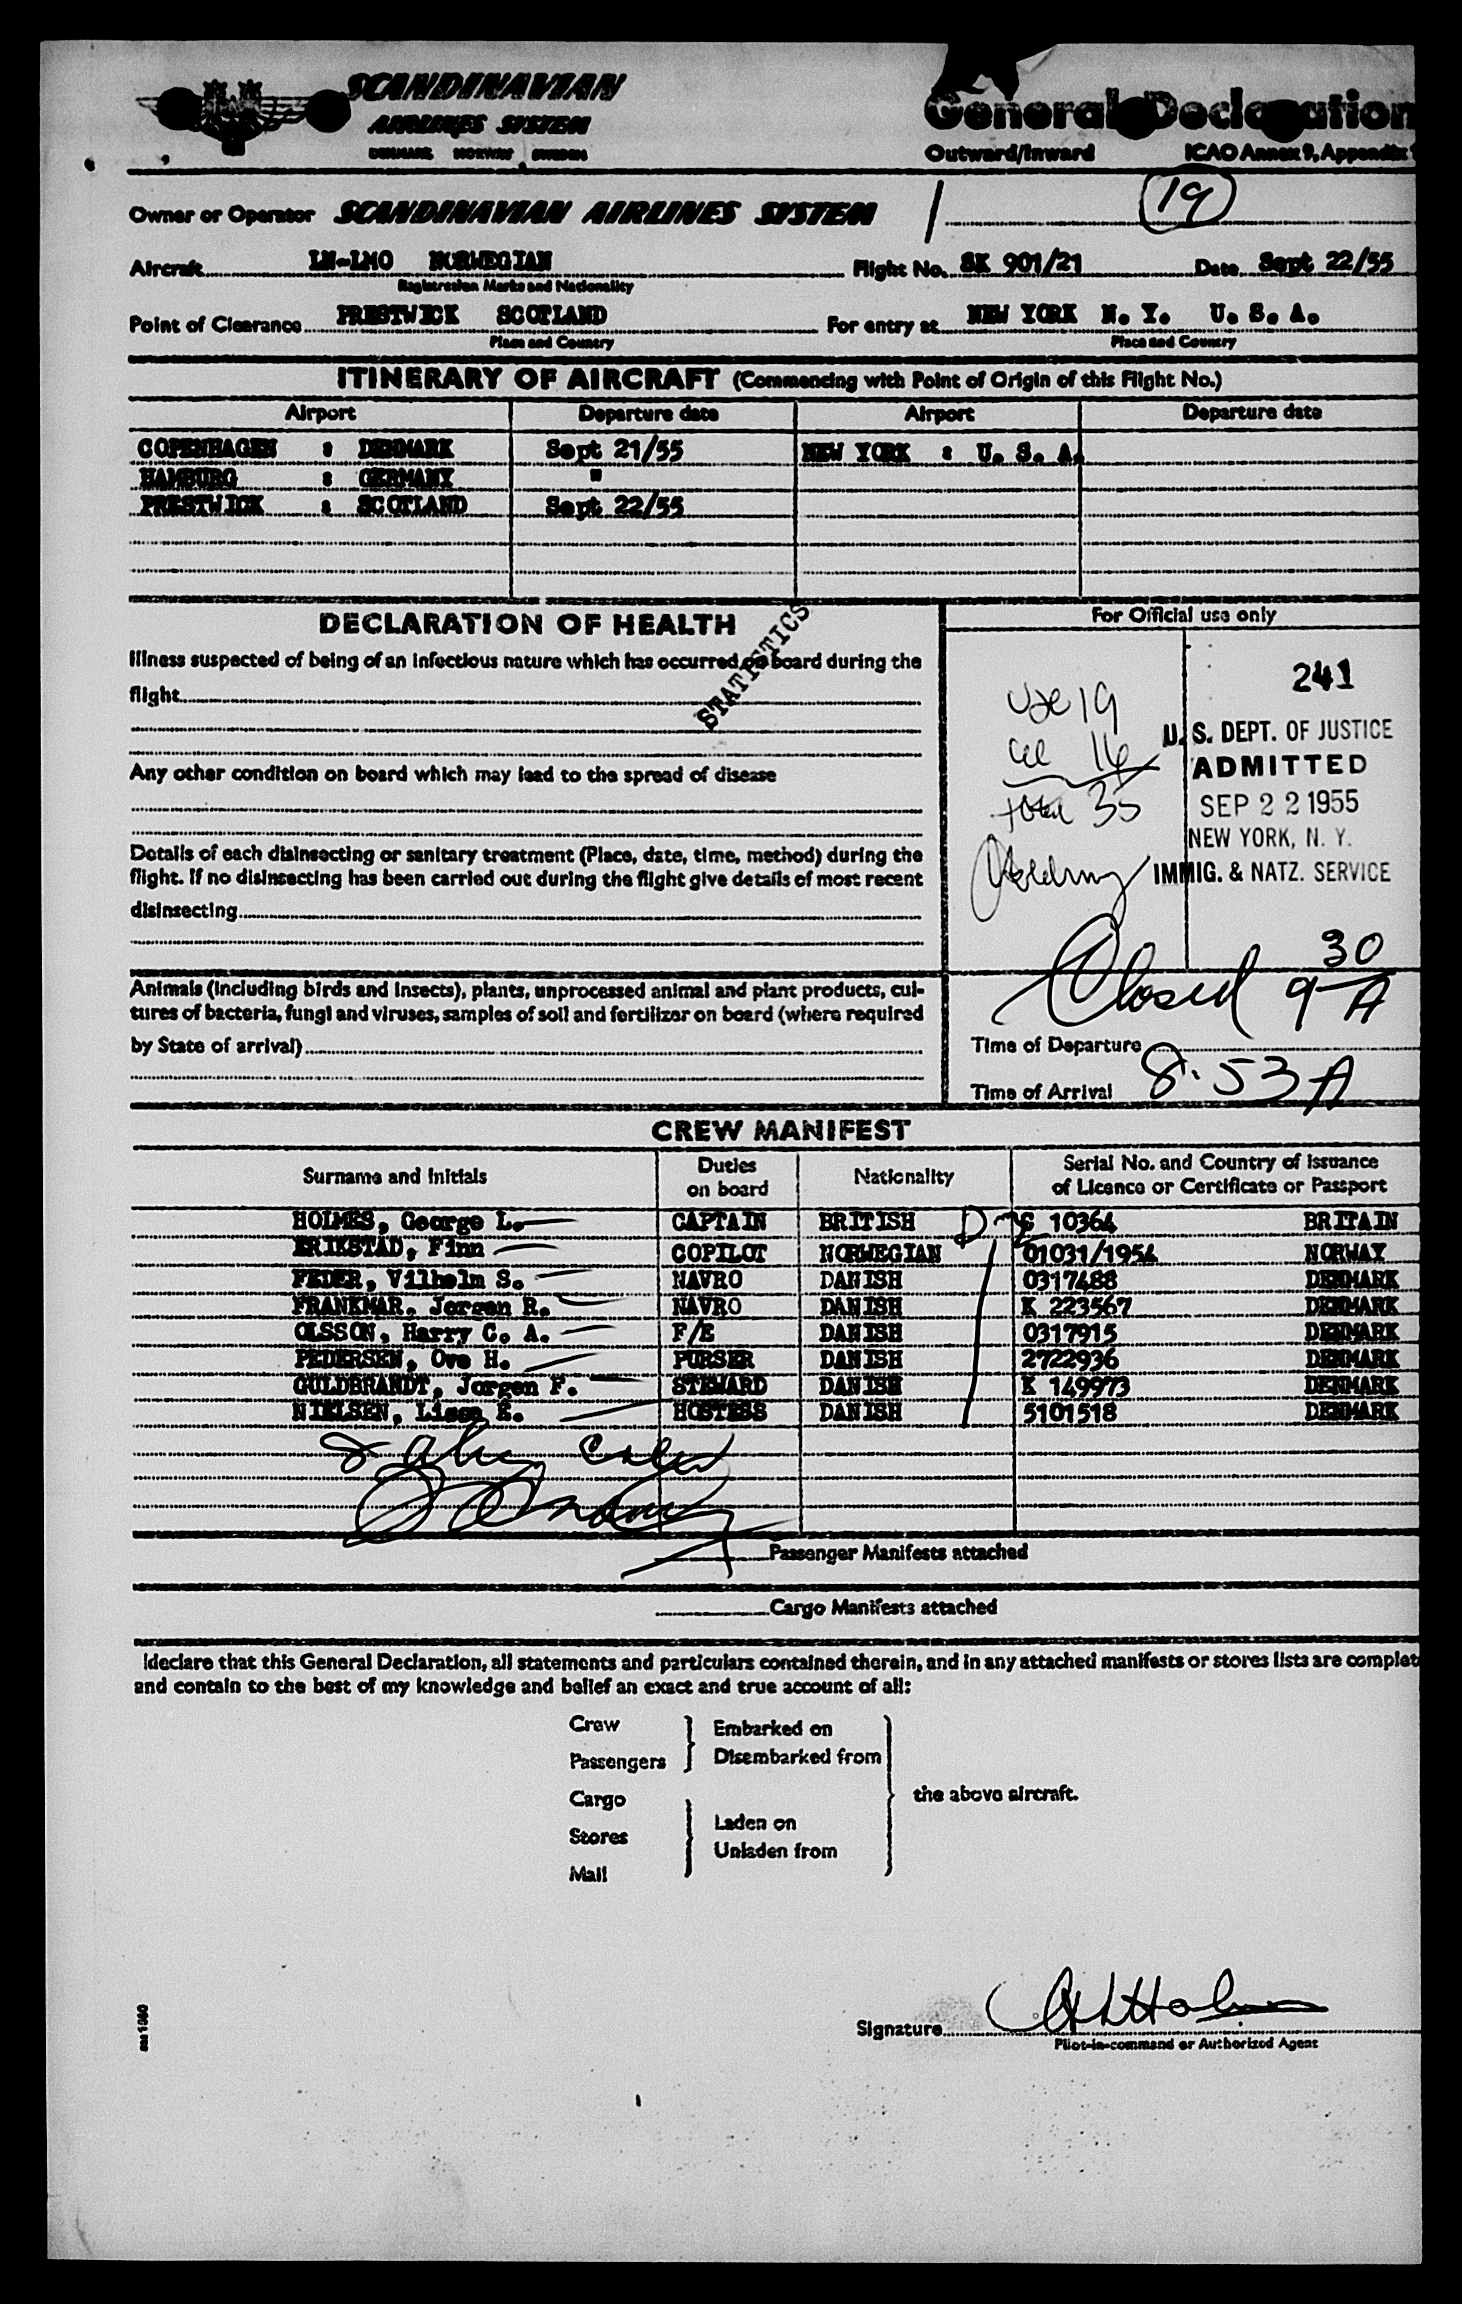 SCANDINAVIAN
AIRLINES SYSTEM
DENMARK NORWAY SWEDEN
General Declaration
Outward/Inward ICAO Annex 9, Appendix 1
19
Owner or Operator SCANDINAVIAN AIRLINES SYSTEM
Aircraft LN-LMO NORWEGIAN Flight No. SK 901/21 Date Sept 22/55
Registration Marks and Nationality
Point of Clearance PRESTWICK SCOTLAND For entry at NEW YORK N. Y. U. S. A.
Place and Country Place and Country
ITINERARY OF AIRCRAFT (Commencing with Point of Origin of this Flight No.)
Airport Departure date Airport Departure date
COPENHAGEN : DENMARK Sept 21/55 NEW YORK : U. S. A.
HAMBURG : GERMANY "
PRESTWICK : SCOTLAND Sept 22/55
DECLARATION OF HEALTH
Illness suspected of being of an infectious nature which has occurred on board during the
flight
STATISTICS
Any other condition on board which may lead to the spread of disease
Details of each disinsecting or sanitary treatment (Place, date, time, method) during the
flight. If no disinsecting has been carried out during the flight give details of most recent
disinsecting
Animals (including birds and insects), plants, unprocessed animal and plant products, cul-
tures of bacteria, fungi and viruses, samples of soil and fertilizer on board (where required
by State of arrival)
For Official use only
241
19
16
total 35
U. S. DEPT. OF JUSTICE
ADMITTED
SEP 22 1955
NEW YORK, N. Y.
IMMIG. & NATZ. SERVICE
Closed 9 30 A
Time of Departure
Time of Arrival 8:53 A
CREW MANIFEST
Surname and Initials Duties on board Nationality Serial No. and Country of issuance of Licence or Certificate or Passport
HOLMES, George L. CAPTAIN BRITISH 10364 BRITAIN
ERIKSTAD, Finn COPILOT NORWEGIAN 01031/1954 NORWAY
FEDER, Vilhelm S. NAVRO DANISH 0317488 DENMARK
FRANKMAR, Jorgen R. NAVRO DANISH K 223567 DENMARK
OLSSON, Harry C. A. F/E DANISH 0317915 DENMARK
PEDERSEN, Ove H. PURSER DANISH 2722936 DENMARK
GULDBRANDT, Jorgen F. STEWARD DANISH K 149973 DENMARK
NIELSEN, Lissa E. HOSTESS DANISH 5101518 DENMARK
8
Passenger Manifests attached
Cargo Manifests attached
I declare that this General Declaration, all statements and particulars contained therein, and in any attached manifests or stores lists are complet
and contain to the best of my knowledge and belief an exact and true account of all:
Crew
Passengers
Embarked on
Disembarked from
Cargo
Stores
Mail
Laden on
Unladen from
the above aircraft.
sas 1060
Signature
Pilot-in-command or Authorized Agent